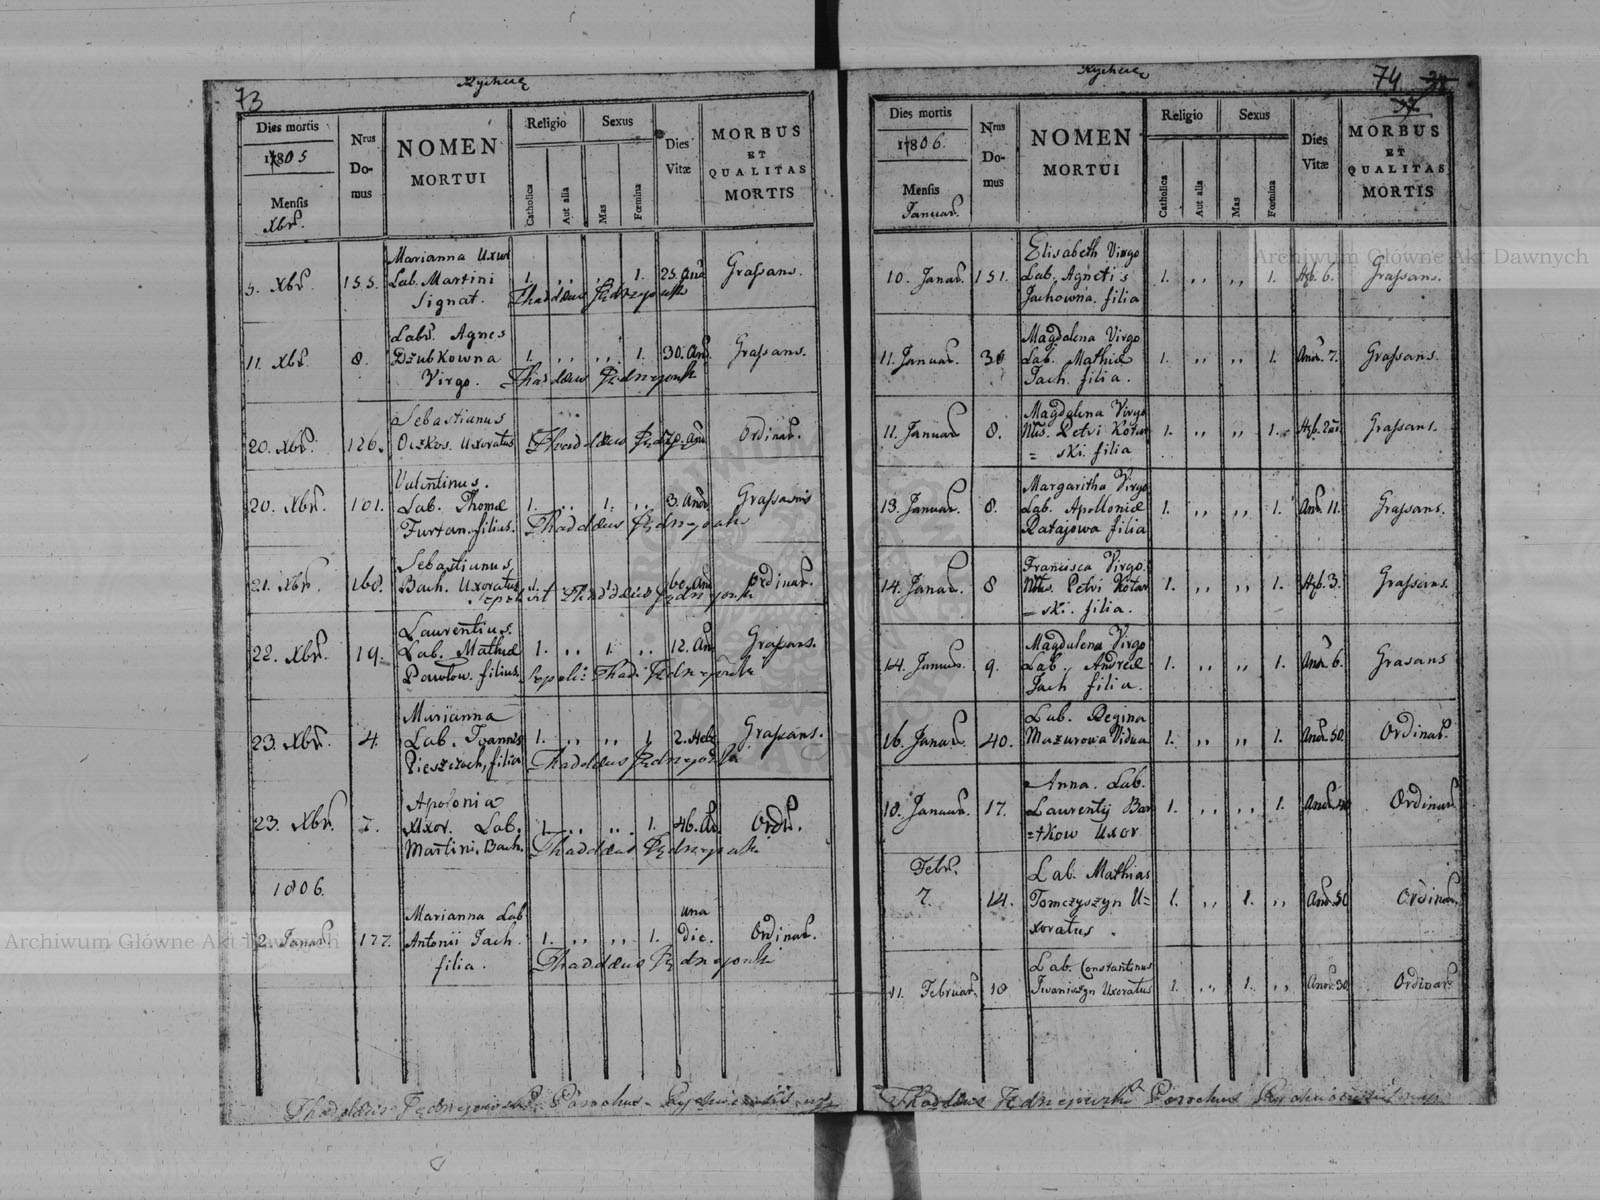 73
Rychcice
Dies mortis
Nrus Domus
NOMEN MORTUI
Religio
Sexus
Dies Vitæ
MORBUS ET QUALITAS MORTIS
1805
Mensis
Xbr.
Catholica
Aut alia
Mas
Fœmina
5. Xbr. 155. Marianna Uxor 1. ,, ,, 1. 25. Ann. Grassans.
Lab. Martini
Signat. Thaddæus
11. Xbr. 8. Labr. Agnes 1. ,, ,, 1. 30. An. Grassans.
Dzubkowna
Virgo. Thaddæus
20. Xbr. 126. Sebastianus Ordinar.
Oczkos. Uxoratus Thaddæus
20. Xbr. 101. Valentinus. 1. ,, 1. ,, 3. Anor. Grassans
Lab. Thomæ
Furtan. filius. Thaddæus
21. Xbr. 160. Sebastianus 60. An. Ordinar.
Bach. Uxoratus Thaddæus
22. Xbr. 19. Laurentius. 1. ,, 1. ,, 12. An. Grassans.
Lab. Mathiæ
Pawlow. filius. Sepeli: Thad.
23. Xbr. 4. Marianna 1. ,, ,, 1. 2. Heb. Grassans.
Lab. Joannis
Pieszczoch, filia Thaddæus
23. Xbr. 7. Apolonia 1. ,, ,, 1. 46. An. Ordr.
Uxor. Lab.
Martini. Bach. Thaddæus
1806.
2. Januar. 177. Marianna Lab 1. ,, ,, 1. una die. Ordinar.
Antonii Jach.
filia. Thaddæus
Thaddæus Parochus
74
Rychcice
37
Dies mortis
Nrus Domus
NOMEN MORTUI
Religio
Sexus
Dies Vitæ
MORBUS ET QUALITAS MORTIS
1806.
Mensis
Januar.
Catholica
Aut alia
Mas
Fœmina
10. Januar. 151. Elisabeth Virgo 1. ,, ,, 1. Heb. 6. Grassans.
Lab. Agnetis
Jachowna. filia
11. Januar. 36 Magdalena Virgo 1. ,, ,, 1. Anor. 7. Grassans.
Lab. Mathiæ
Jach. filia.
11. Januar. 8. Magdalena Virgo 1. ,, ,, 1. Grassans.
Petri Kotar
= ski. filia
13. Januar. 8. Margaritha Virgo 1. ,, ,, 1. Anor. 11. Grassans.
Lab. Apolloniæ
Ratajowa filia
14. Januar. 8 Francisca Virgo. 1. ,, ,, 1. Heb. 3. Grassans.
Petri Kotar
- ski. filia.
14. Januar. 9. Magdalena Virgo 1. ,, ,, 1. Anor. 6. Grasans
Lab. Andreæ
Jach filia.
16. Januar. 40. Lab. Regina 1. ,, ,, 1. Anor. 50. Ordinar.
Mazurowa Vidua
18. Januar. 17. Anna. Lab. 1. ,, ,, 1. Anor. 40 Ordinar.
Laurentij Bar
=tkow Uxor
Febr.
7. 14. Lab. Mathias 1. ,, 1. ,, Anor. 50 Ordinar.
Tomczyszyn U=
xoratus.
11. Februar. 18 Lab. Constantinus 1. ,, 1. ,, Anor. 30 Ordinar.
Iwaniszyn Uxoratus
Thaddæus Parochus
Archiwum Główne Akt Dawnych
Archiwum Główne Akt Dawnych